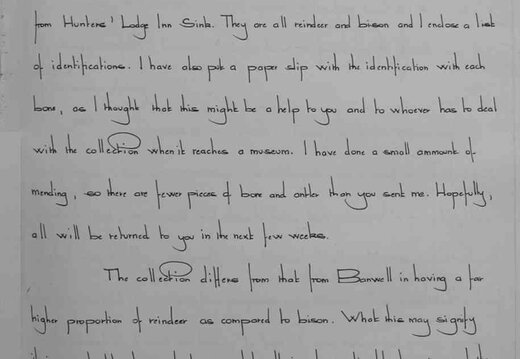 from Hunters' Lodge Inn Sink. They are all reindeer and bison and I enclose a list
of identifications. I have also put a paper slip with the identification with each
bone, as I thought that this might be a help to you and to whoever has to deal
with the collection when it reaches a museum. I have done a small ammount of
mending, so there are fewer pieces of bone and antler than you sent me. Hopefully,
all will be returned to you in the next few weeks.
The collection differs from that from Banwell in having a far
higher proportion of reindeer as compared to bison. What this may signify